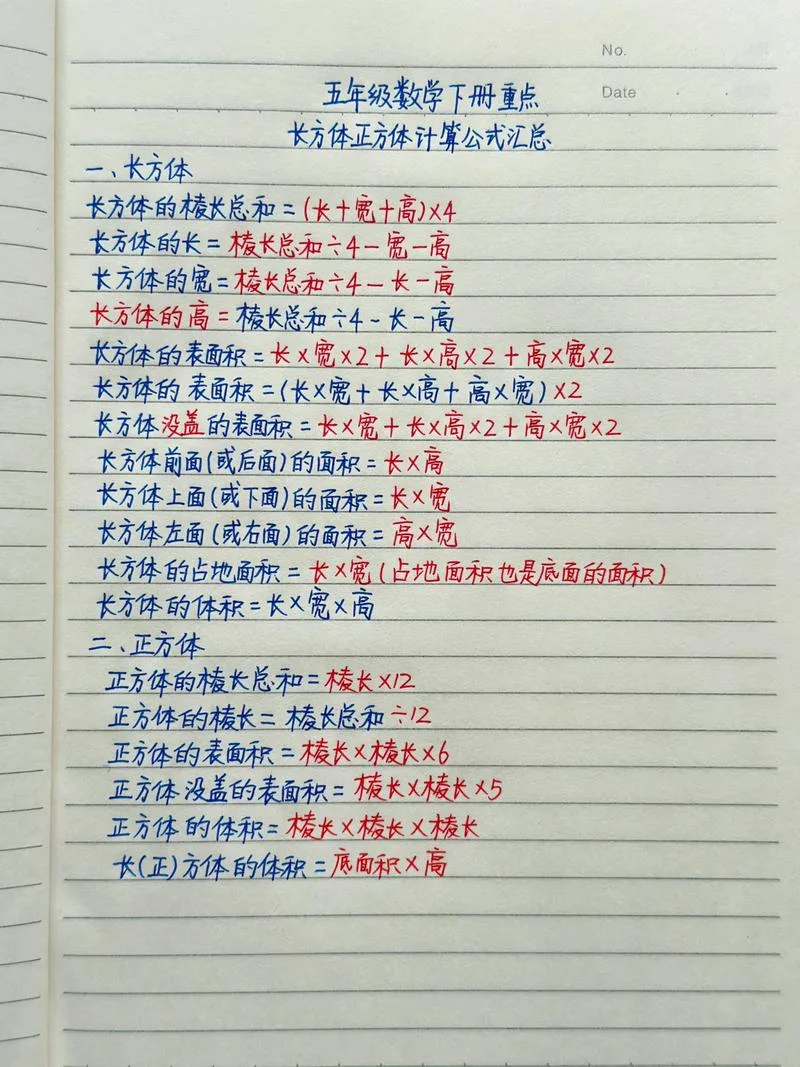 No.
Date
五年级数学下册重点
长方体正方体计算公式汇总
一、长方体
长方体的棱长总和=(长+宽+高)×4
长方体的长=棱长总和÷4-宽-高
长方体的宽=棱长总和÷4-长-高
长方体的高=棱长总和÷4-长-高
长方体的表面积=长×宽×2+长×高×2+高×宽×2
长方体的表面积=(长×宽+长×高+高×宽)×2
长方体没盖的表面积=长×宽+长×高×2+高×宽×2
长方体前面(或后面)的面积=长×高
长方体上面(或下面)的面积=长×宽
长方体左面(或右面)的面积=高×宽
长方体的占地面积=长×宽(占地面积也是底面的面积)
长方体的体积=长×宽×高
二、正方体
正方体的棱长总和=棱长×12
正方体的棱长=棱长总和÷12
正方体的表面积=棱长×棱长×6
正方体没盖的表面积=棱长×棱长×5
正方体的体积=棱长×棱长×棱长
长(正)方体的体积=底面积×高